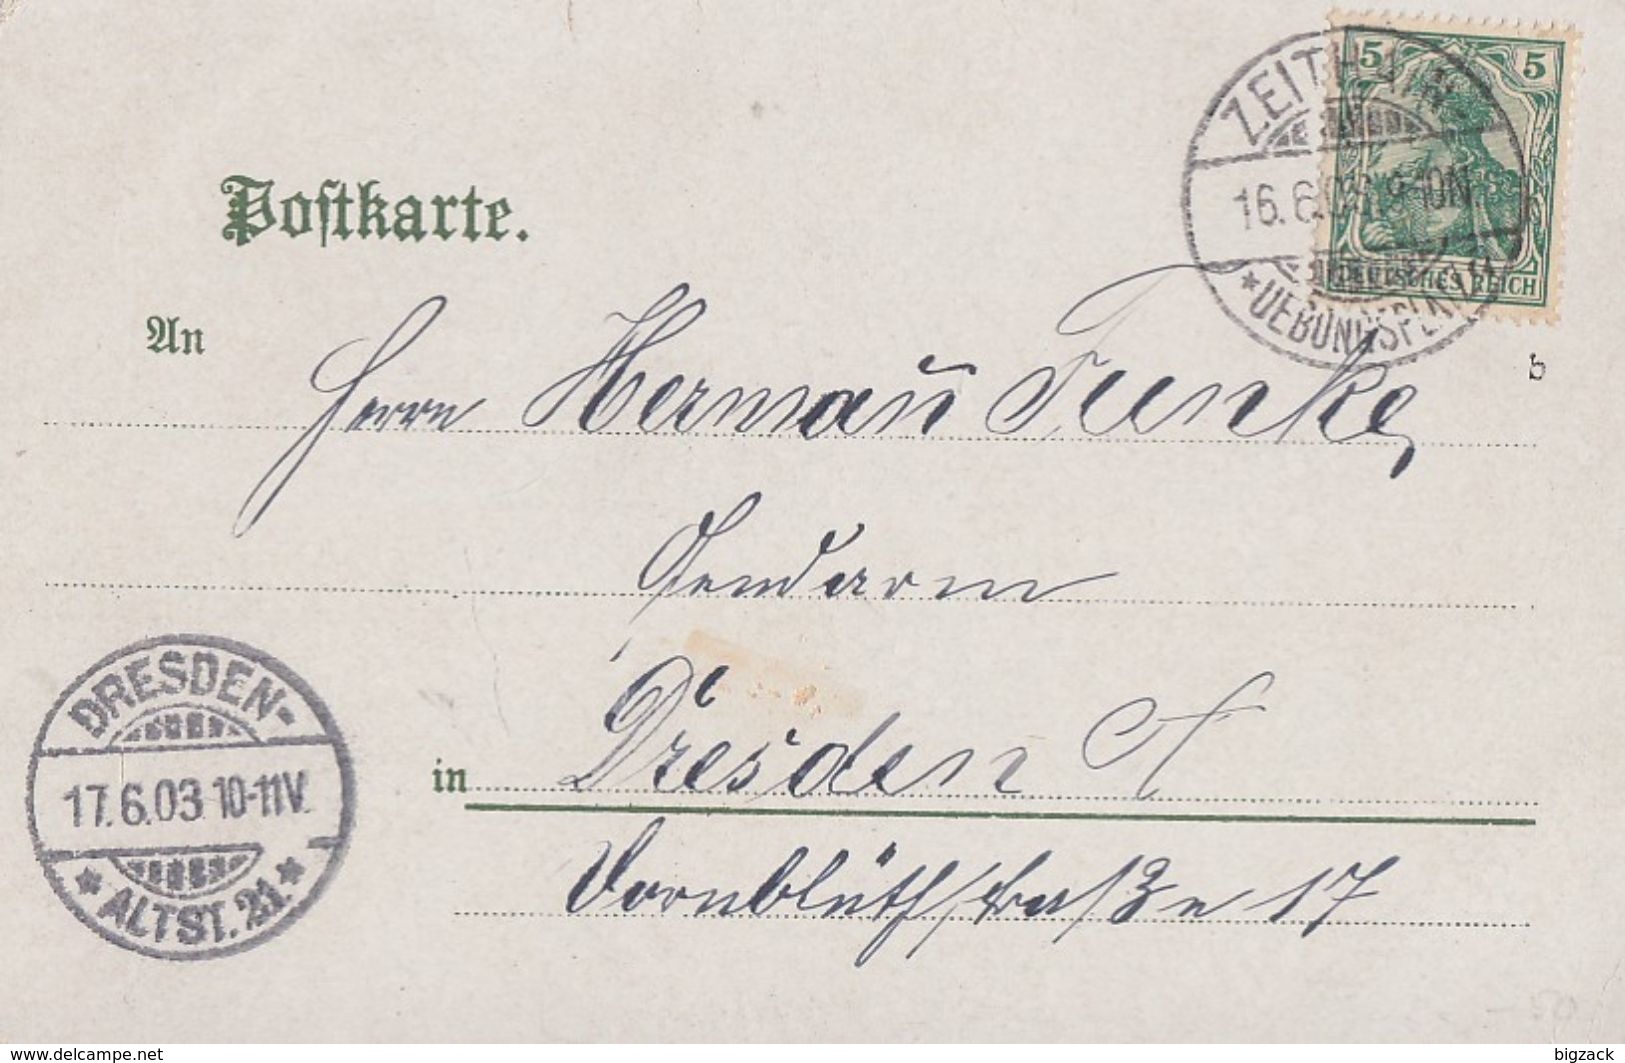 5 5
ZEITHAIN
16.6.03. 9-10N.
DEUTSCHES REICH
* UEBUNGSPLATZ
b
Postkarte.
An
Herrn Hermañ Funke,
Gendarm
in Dresden A
Dornblüthstraße 17
DRESDEN-
17.6.03. 10-11V.
* ALTST. 21. *
www.delcampe.net
bigzack